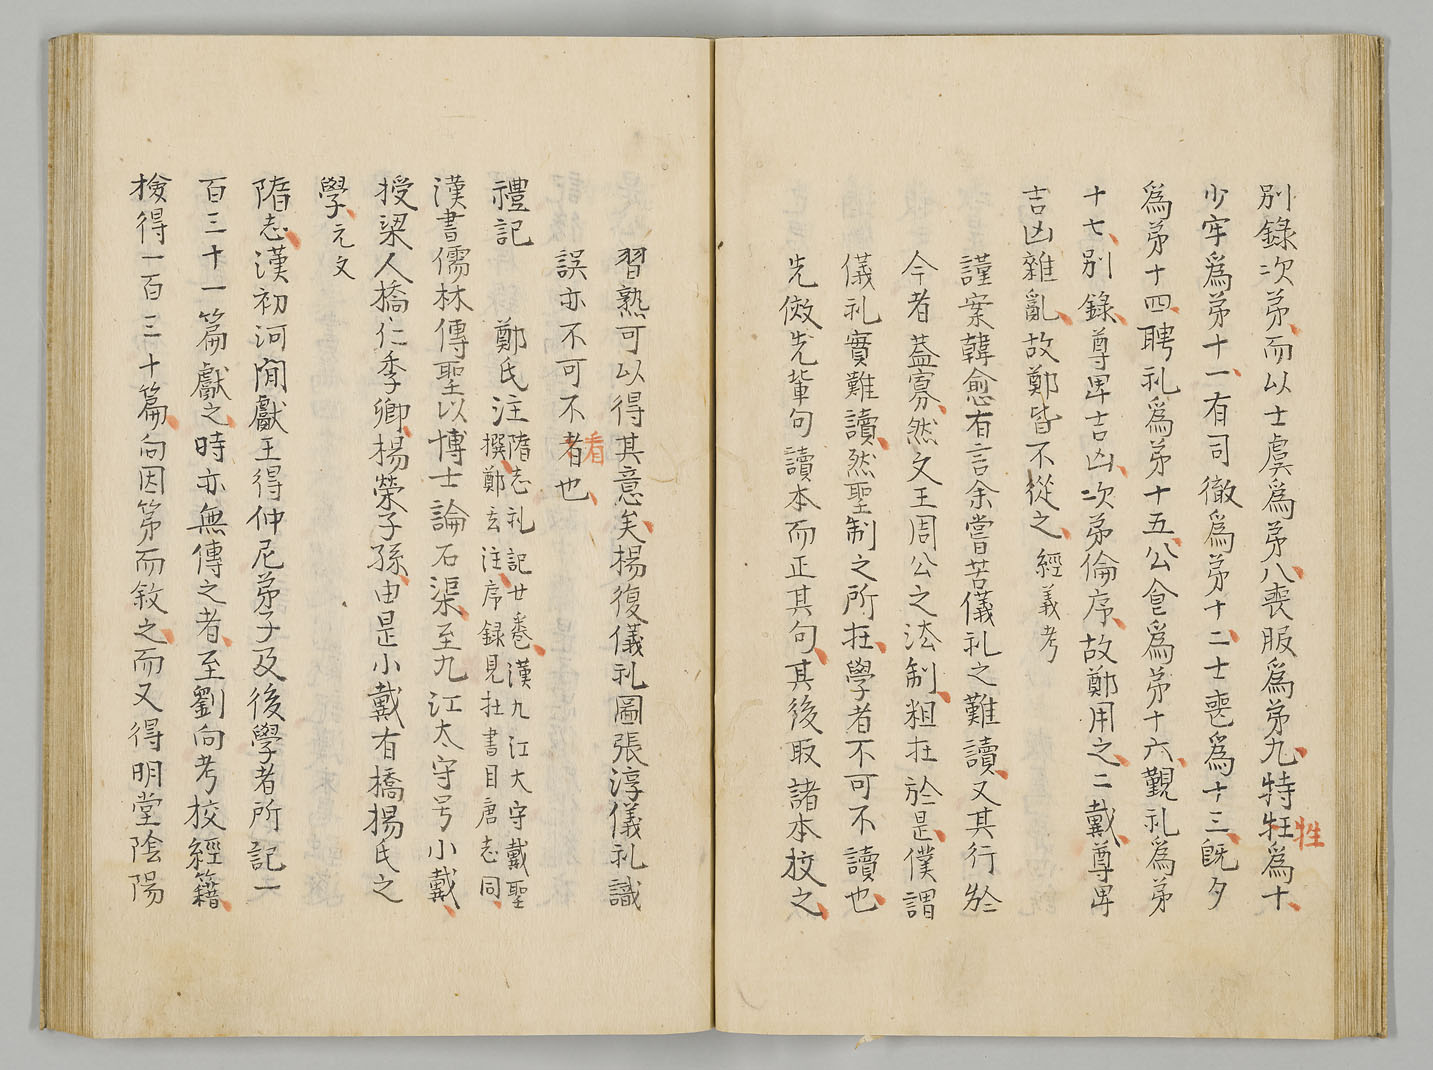 別錄次苐而以士虞爲苐八喪服爲苐九特牲爲十
牲
少牢爲苐十一有司徹爲苐十二士喪爲十三旣夕
爲苐十四聘礼爲苐十五公食爲苐十六覲礼爲苐
十七別錄尊卑吉凶次苐倫序故鄭用之二戴尊卑
吉凶雜亂故鄭皆不從之 經義考
謹案韓愈有言余嘗苦儀礼之難讀又其行於
今者蓋寡然文王周公之法制粗在於是僕謂
儀礼實難讀然聖制之所在學者不可不讀也
先倣先輩句讀本而正其句其後取諸本校之
習熟可以得其意矣楊復儀礼圖張淳儀礼識
誤亦不可不者也
看
禮記 鄭氏注
隋志礼記廿卷漢九江太守戴聖
撰鄭玄注序録見在書目唐志同
漢書儒林傳聖以博士論石渠至九江太守号小戴
授梁人橋仁季卿楊榮子孫由是小戴有橋楊氏之
學 元文
隋志漢初河間獻王得仲尼弟子及後學者所記一
百三十一篇獻之時亦無傳之者至劉向考校經籍
檢得一百三十篇向因第而敘之而又得明堂陰陽